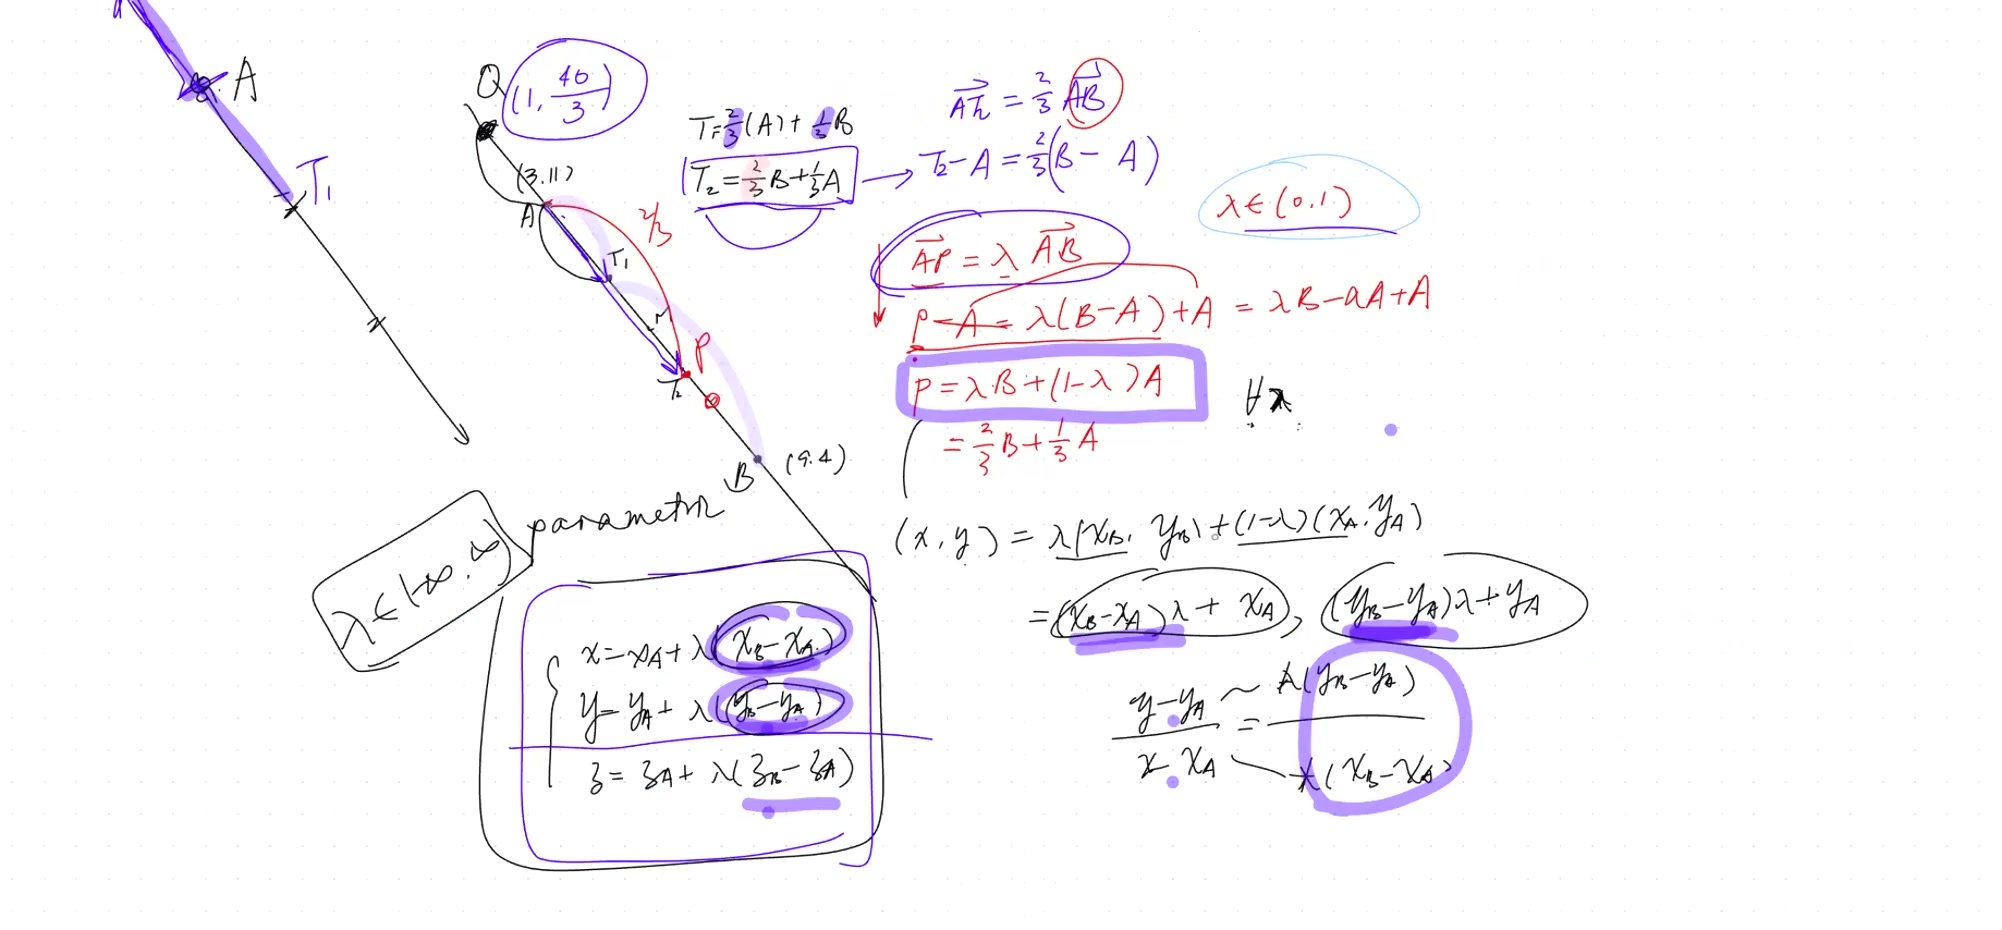 A
T₁
Q (1, 40/3)
(3.11)
A
T₁
2/3
P
T₂
B (9.4)
T=2/3(A)+1/3B
T₂=2/3B+1/3A
AT₂ = 2/3 AB
T₂-A=2/3(B-A)
λ∈(0.1)
AP = λ AB
P-A=λ(B-A)+A = λB-λA+A
P=λB+(1-λ)A
∀λ
=2/3B+1/3A
λ∈(-∞.∞)
parametric
(x,y)=λ(x_B, y_B)+(1-λ)(x_A.y_A)
=(x_B-x_A)λ+x_A, (y_B-y_A)λ+y_A
x=x_A+λ(x_B-x_A)
y=y_A+λ(y_B-y_A)
z=z_A+λ(z_B-z_A)
y-y_A / x-x_A = λ(y_B-y_A) / λ(x_B-x_A)